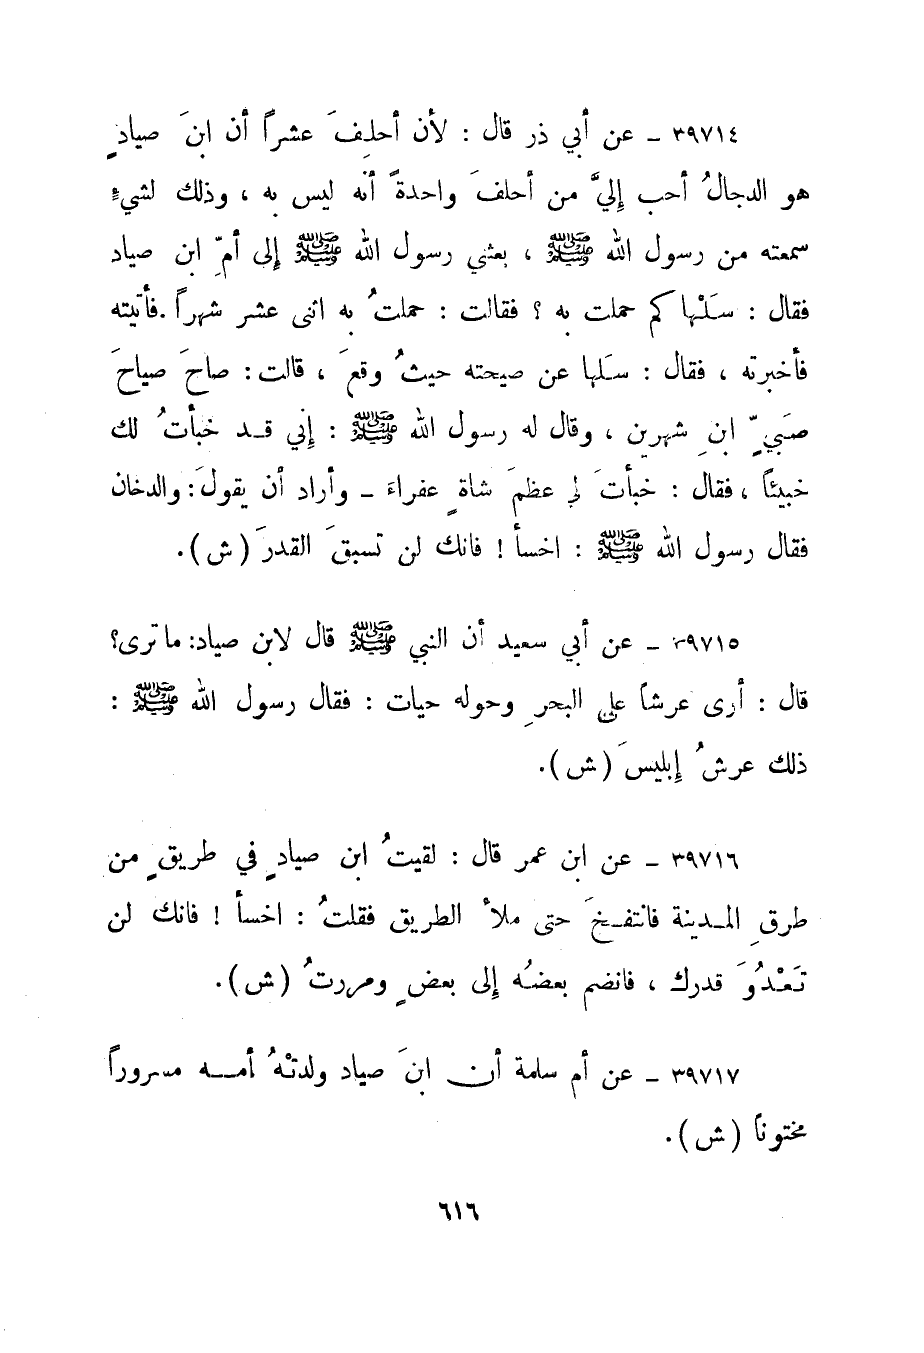 ٣٩٧١٤ ـ عن أبي ذر قال : لأن أحلِفَ عشراً أن ابنَ صيادٍ
هو الدجالُ أحب إليَّ من أحلفَ واحدةً أنه ليس به ، وذلك لشيءٍ
سمعته من رسول الله ﷺ ، بعثني رسول الله ﷺ إلى أمِّ ابن صياد
فقال : سَلْها كم حملت به ؟ فقالت : حملتُ به اثنى عشر شهراً . فأتيته
فأخبرته ، فقال : سَلها عن صيحته حيثُ وقعَ ، قالت : صاحَ صياحَ
صبَيٍّ ابنِ شهرين ، وقال له رسول الله ﷺ : إني قد خبأتُ لك
خبيئاً ، فقال : خبأتَ لي عظمَ شاةٍ عفراءَ ـ وأراد أن يقولَ : والدخان
فقال رسول الله ﷺ : اخسأ ! فانك لن تسبقَ القدرَ ( ش ) .
٣٩٧١٥ ـ عن أبي سعيد أن النبي ﷺ قال لابن صياد : ما ترى ؟
قال : أرى عرشاً على البحرِ وحوله حيات : فقال رسول الله ﷺ :
ذلك عرشُ إبليسَ ( ش ) .
٣٩٧١٦ ـ عن ابن عمر قال : لقيتُ ابن صيادٍ في طريقٍ من
طرقِ المدينة فانتفخَ حتى ملأ الطريق فقلتُ : اخسأ ! فانك لن
تَعْدُوَ قدرك ، فانضم بعضُه إلى بعضٍ ومررتُ ( ش ) .
٣٩٧١٧ ـ عن أم سلمة أن ابنَ صياد ولدتْهُ أمه مسروراً
مختوناً ( ش ) .
٦١٦